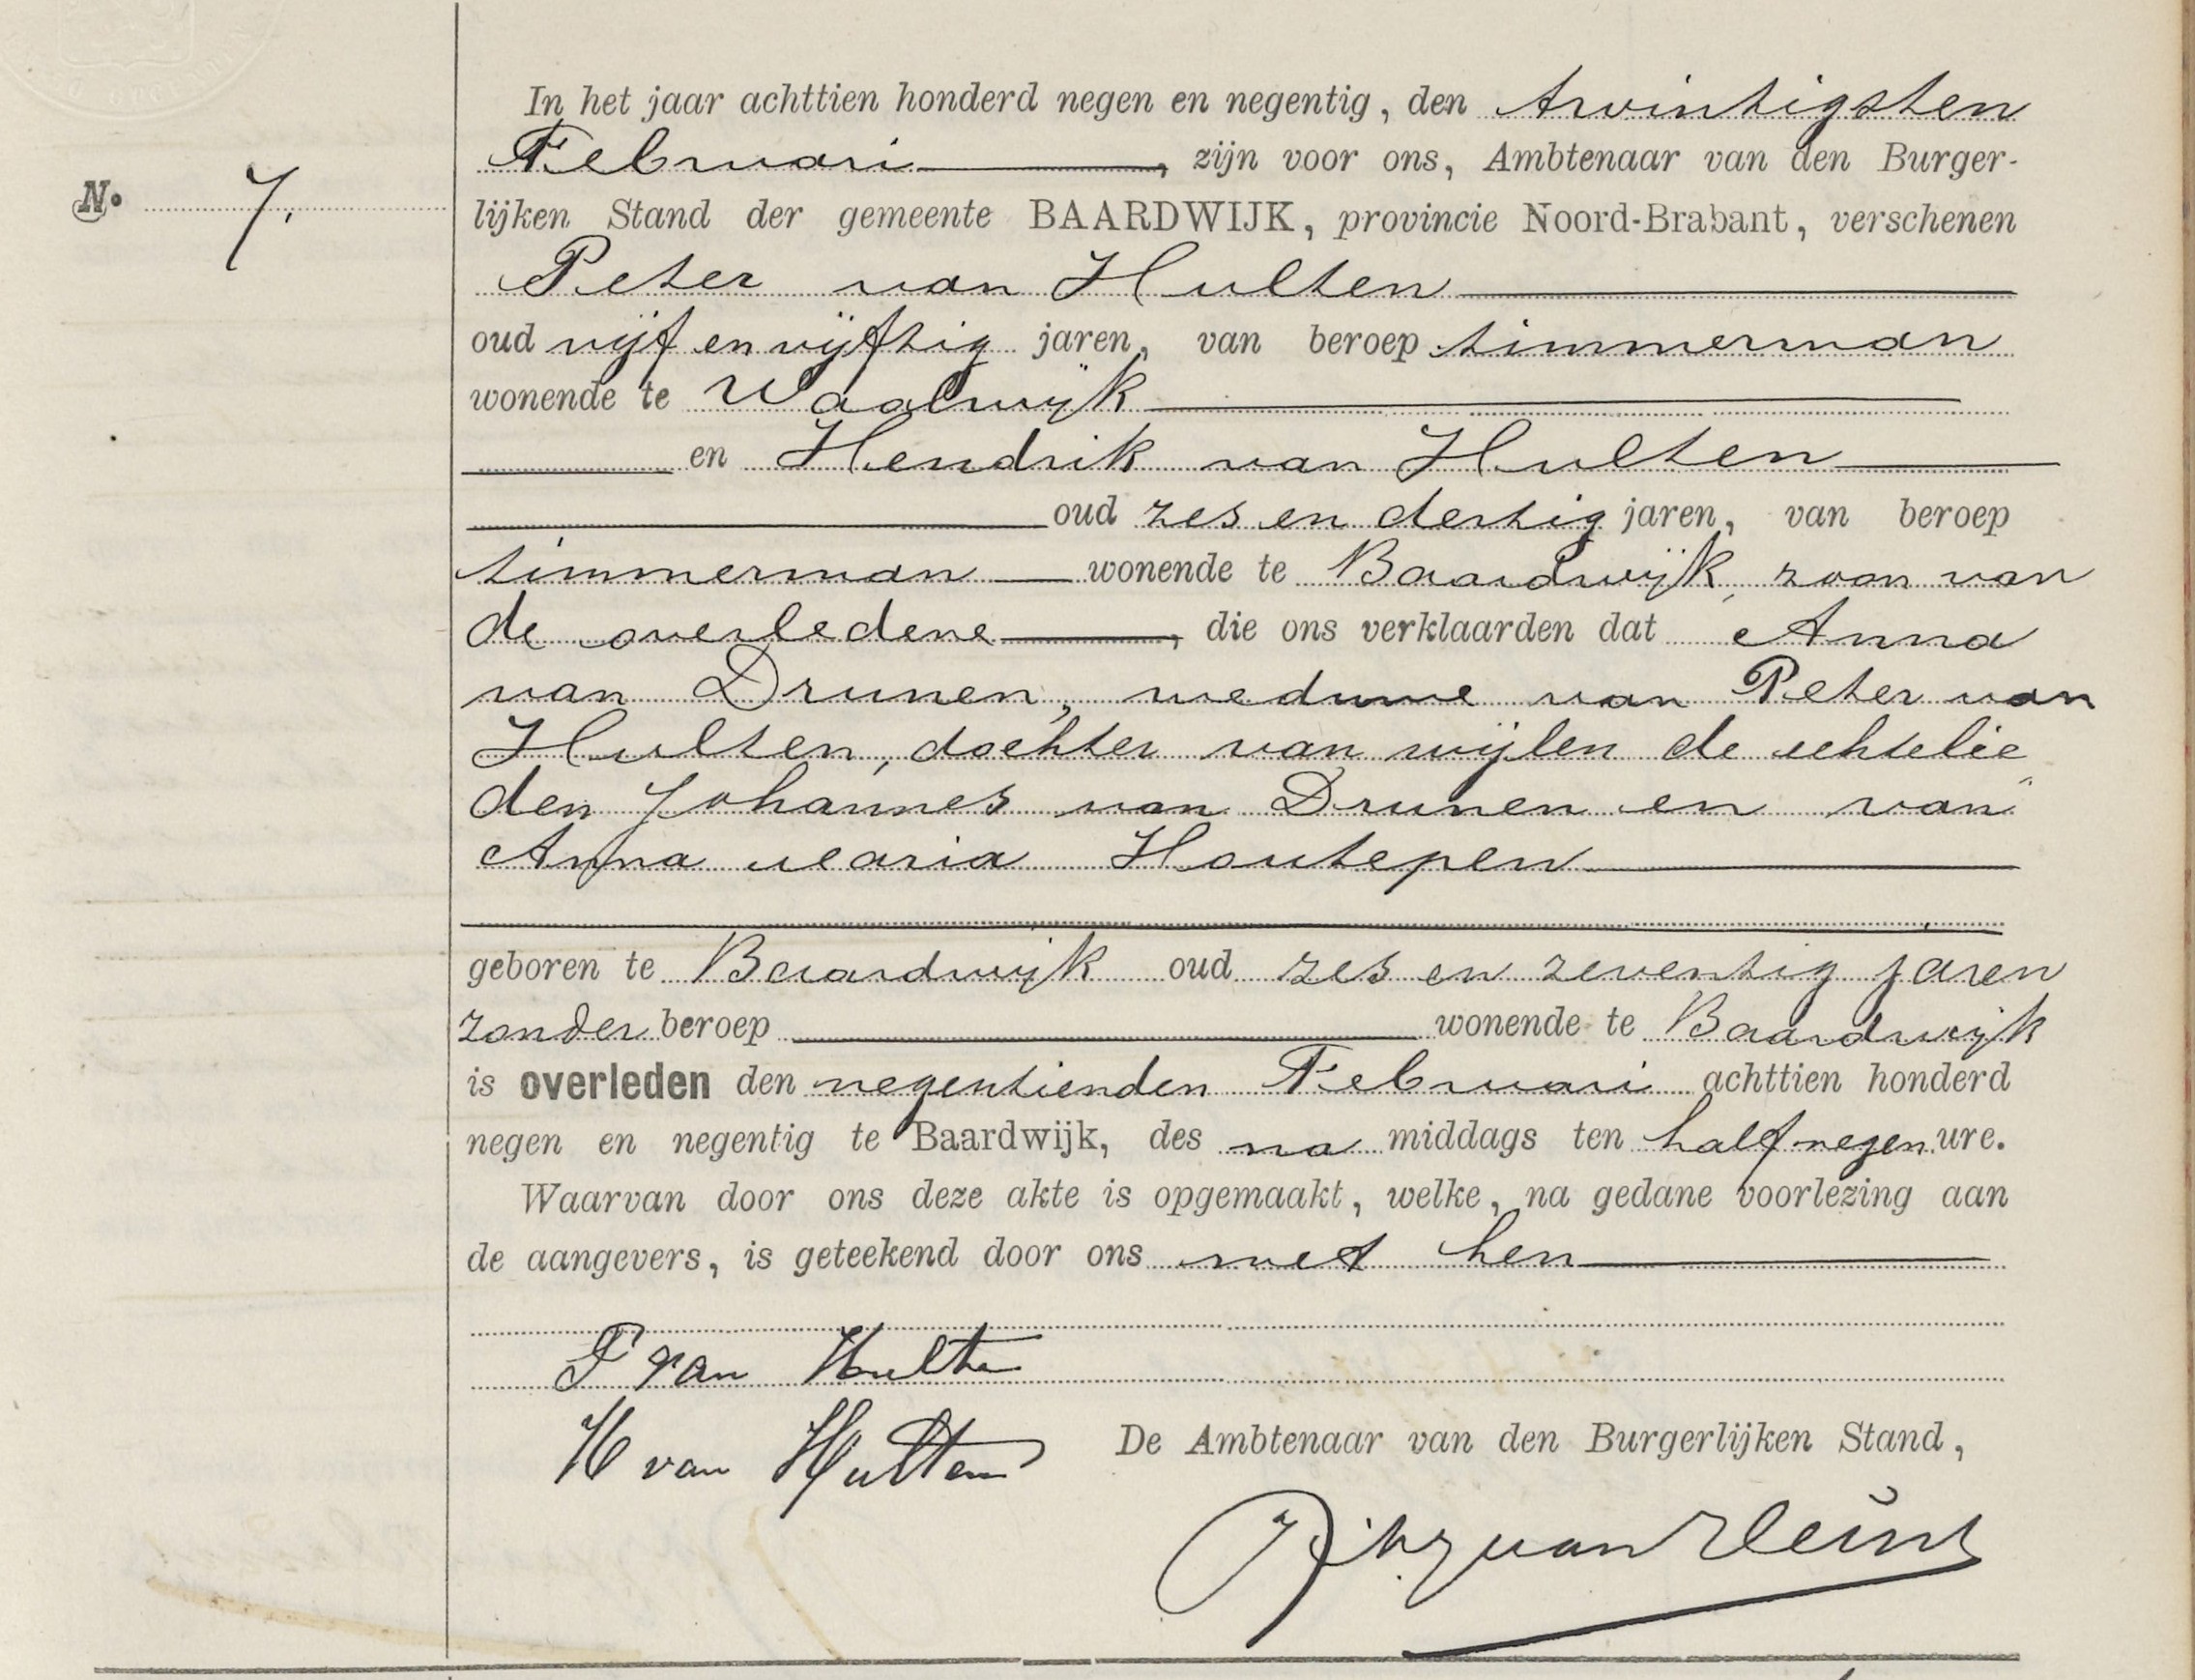 N. 7.
In het jaar achttien honderd negen en negentig, den twintigsten
Februari, zijn voor ons, Ambtenaar van den Burger-
lijken Stand der gemeente BAARDWIJK, provincie Noord-Brabant, verschenen
Peter van Hulten
oud vijf en vijftig jaren, van beroep timmerman
wonende te Waalwijk
en Hendrik van Hulten
oud zes en dertig jaren, van beroep
timmerman wonende te Baardwijk, zoon van
de overledene, die ons verklaarden dat Anna
van Drunen, weduwe van Peter van
Hulten, dochter van wijlen de echtelie
den Johannes van Drunen en van
Anna Maria Houtepen
geboren te Baardwijk oud zes en zeventig jaren
zonder beroep wonende te Baardwijk
is overleden den negentienden Februari achttien honderd
negen en negentig te Baardwijk, des na middags ten half negen ure.
Waarvan door ons deze akte is opgemaakt, welke, na gedane voorlezing aan
de aangevers, is geteekend door ons met hen
P van Hulten
H van Hulten
De Ambtenaar van den Burgerlijken Stand,
van